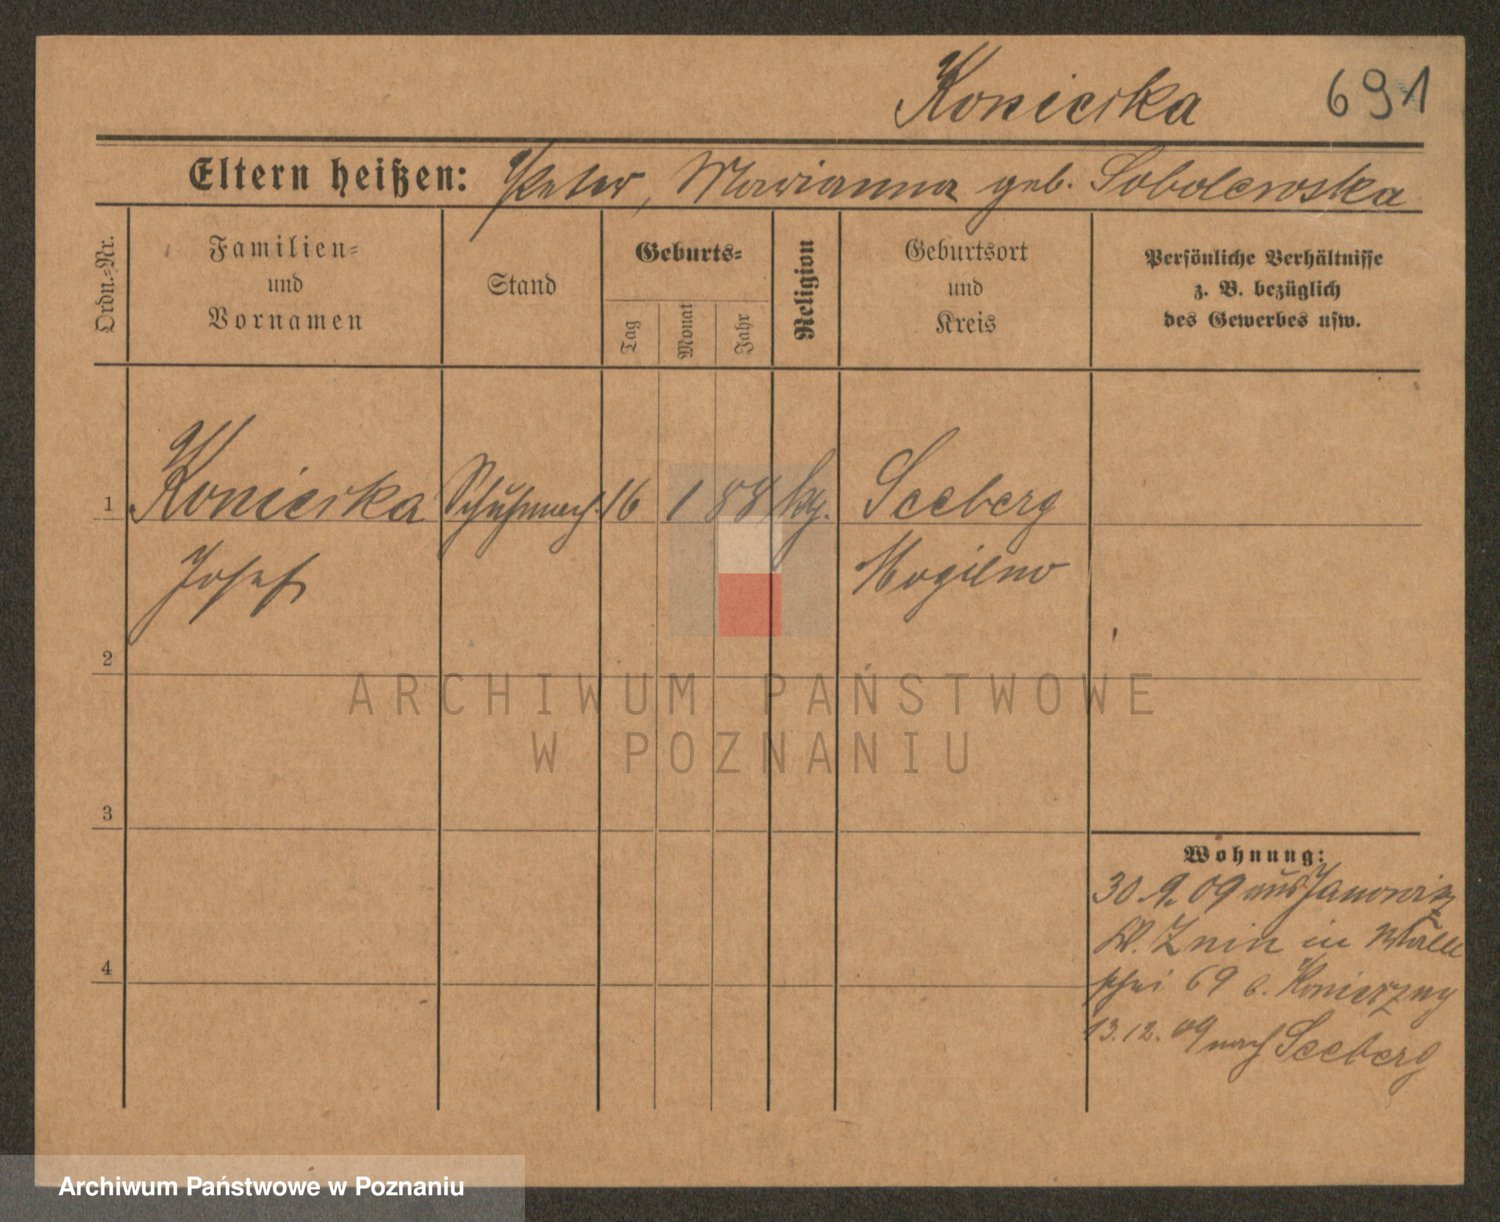 Konieska 691
Eltern heißen: Peter, Marianna geb. Sobolewska
Ordn.=Nr.
Familien=
und
Vornamen
Stand
Geburts=
Tag
Monat
Jahr
Religion
Geburtsort
und
Kreis
Persönliche Verhältnisse
z. B. bezüglich
des Gewerbes usw.
1 Konieska Schuhmach. 16 1 88 Seeberg
Josef Mogilno
2
ARCHIWUM PAŃSTWOWE
W POZNANIU
3
Wohnung:
30.9.09 aus Janowitz
Znin in Walli
schei 69 b. Konierzny
4
13.12.09 nach Seeberg
Archiwum Państwowe w Poznaniu